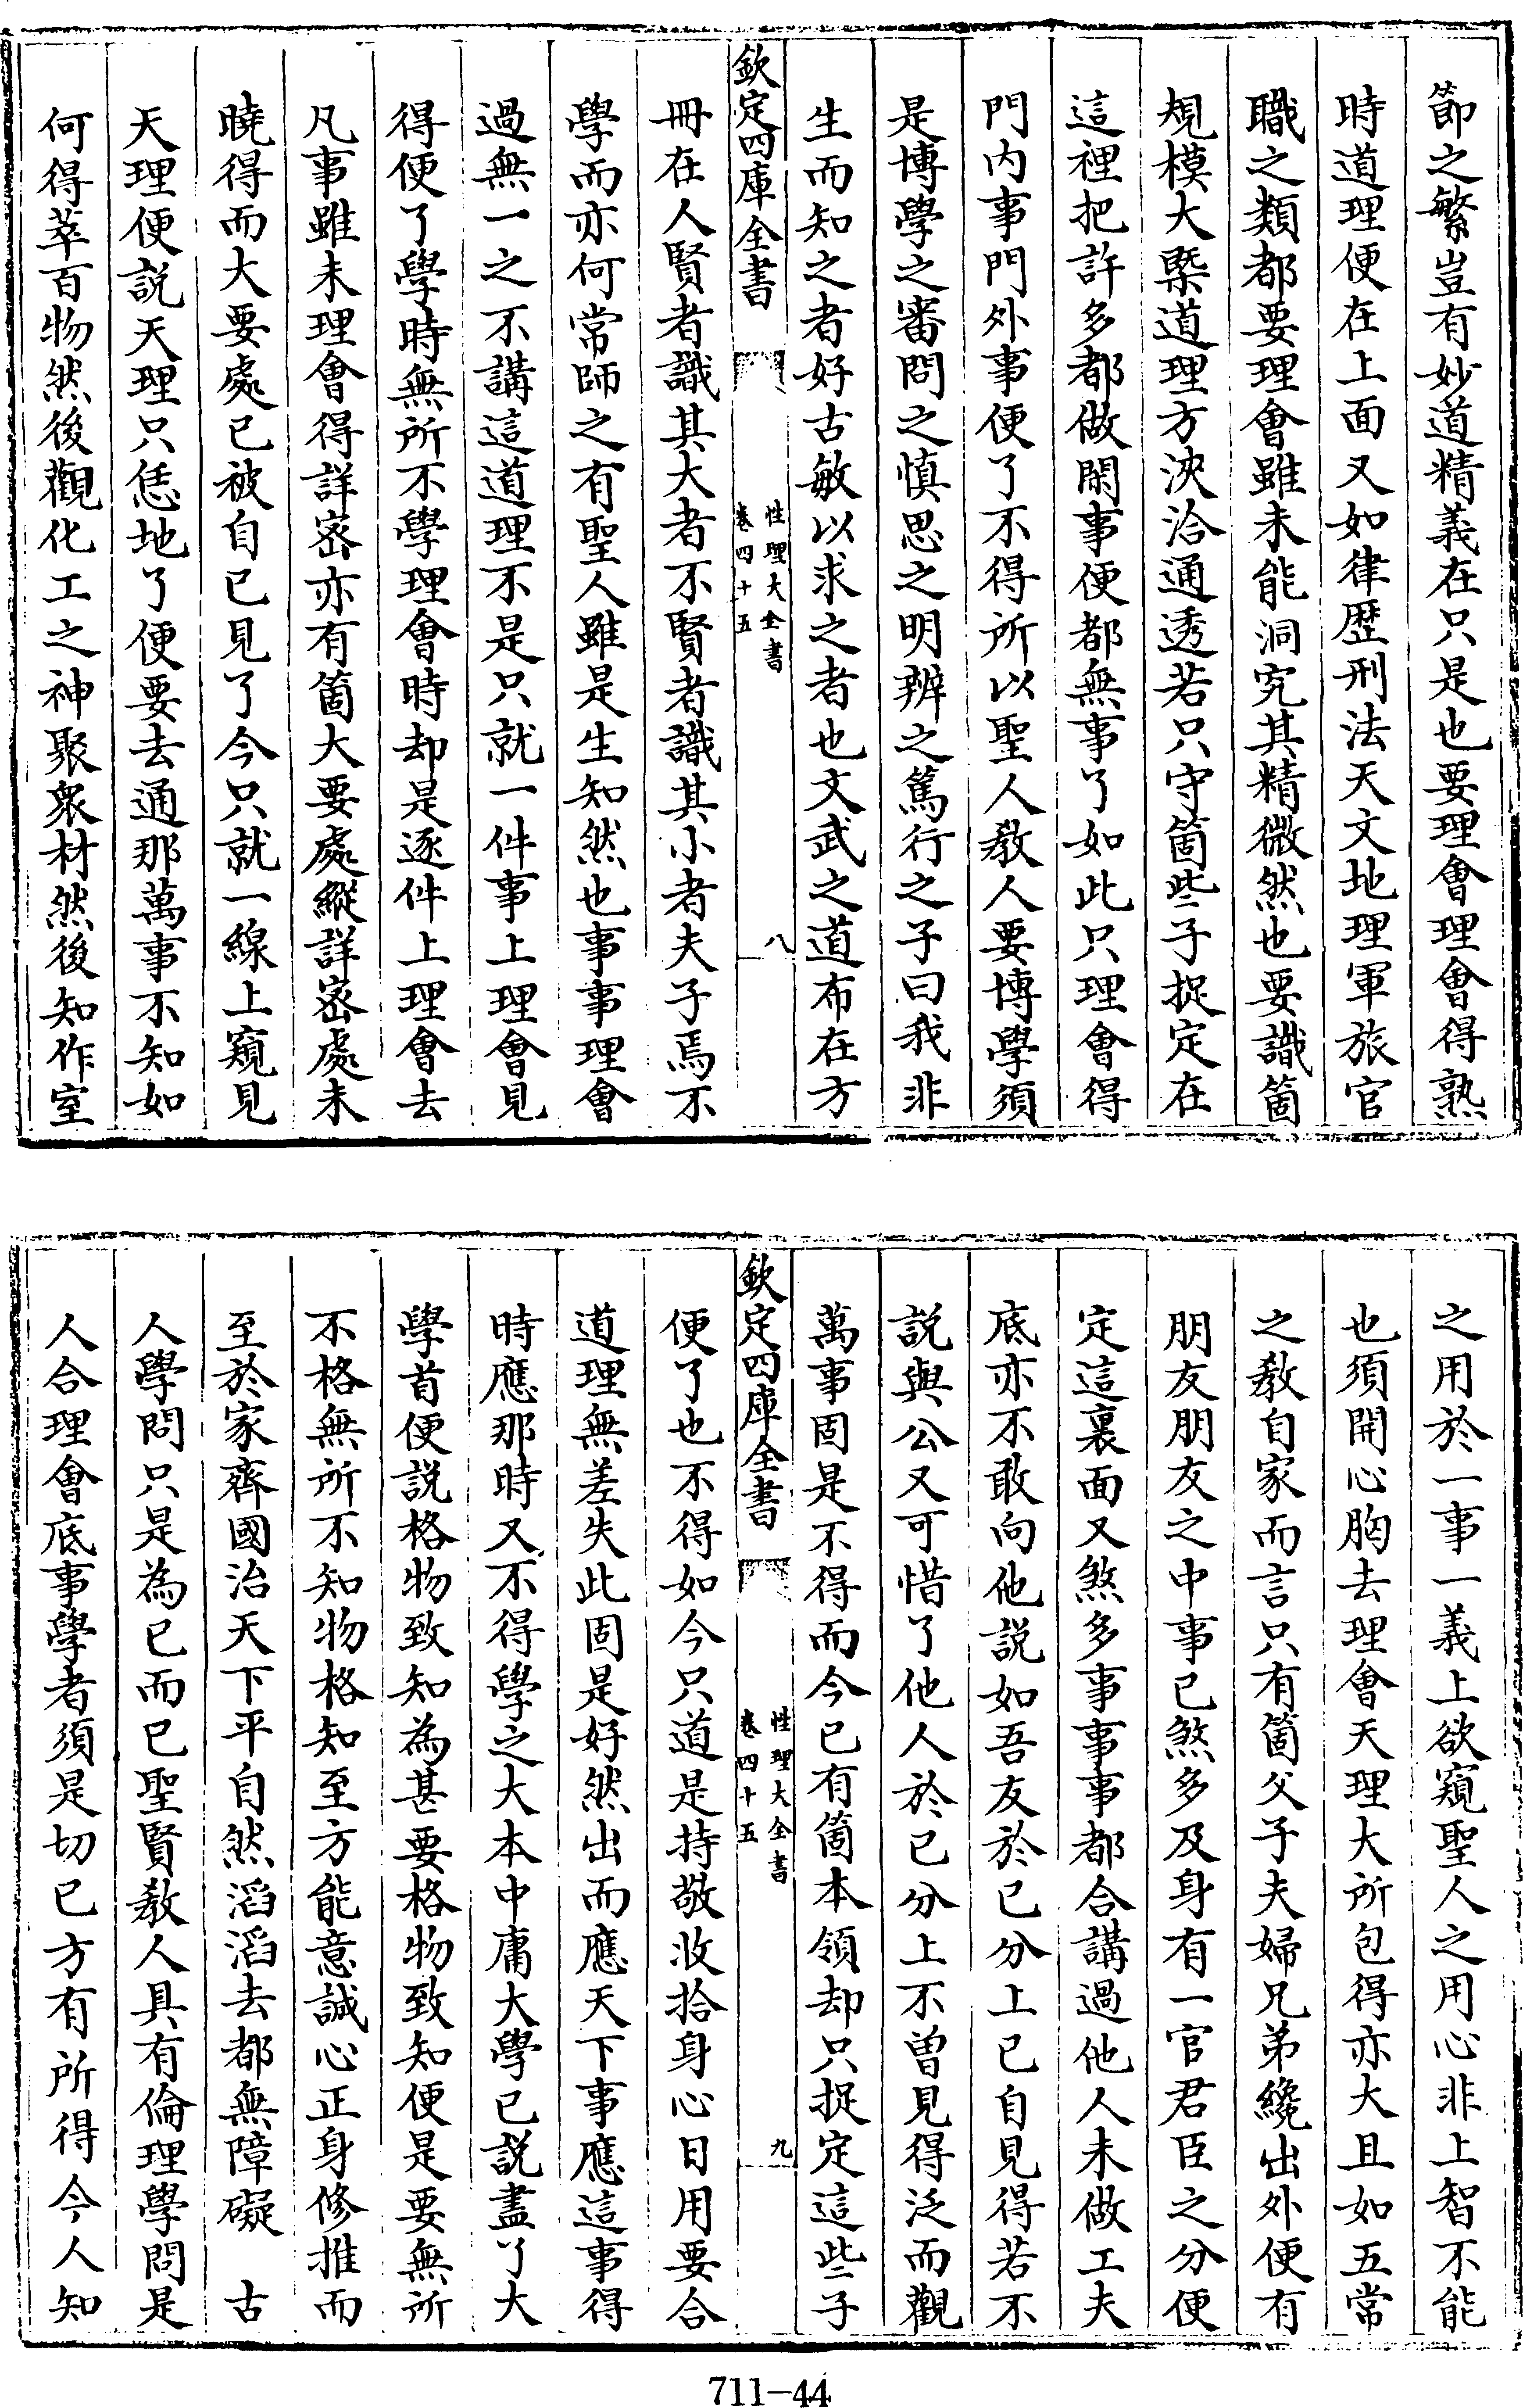 節之繁豈有妙道精義在只是也要理會理會得熟
時道理便在上面又如律歴刑法天文地理軍旅官
職之類都要理會雖未能洞究其精微然也要識箇
規模大槩道理方浹洽通透若只守箇些子捉定在
這裡把許多都做閑事便都無事了如此只理會得
門内事門外事便了不得所以聖人教人要博學須
是博學之審問之慎思之明辨之篤行之子曰我非
生而知之者好古敏以求之者也文武之道布在方
欽定四庫全書
性理大全書
卷四十五
八
冊在人賢者識其大者不賢者識其小者夫子焉不
學而亦何常師之有聖人雖是生知然也事事理會
過無一之不講這道理不是只就一件事上理會見
得便了學時無所不學理會時却是逐件上理會去
凡事雖未理會得詳宻亦有箇大要處縱詳宻處未
曉得而大要處已被自已見了今只就一線上窺見
天理便説天理只恁地了便要去通那萬事不知如
何得萃百物然後觀化工之神聚衆材然後知作室
之用於一事一義上欲窺聖人之用心非上智不能
也須開心胸去理會天理大所包得亦大且如五常
之教自家而言只有箇父子夫婦兄弟纔出外便有
朋友朋友之中事已煞多及身有一官君臣之分便
定這裏面又煞多事事事都合講過他人未做工夫
底亦不敢向他説如吾友於已分上已自見得若不
説與公又可惜了他人於已分上不曽見得泛而觀
萬事固是不得而今已有箇本領却只捉定這些子
欽定四庫全書
性理大全書
卷四十五
九
便了也不得如今只道是持敬收拾身心日用要合
道理無差失此固是好然出而應天下事應這事得
時應那時又不得學之大本中庸大學已説盡了大
學首便説格物致知為甚要格物致知便是要無所
不格無所不知物格知至方能意誠心正身修推而
至於家齊國治天下平自然滔滔去都無障礙　古
人學問只是為已而已聖賢教人具有倫理學問是
人合理會底事學者須是切已方有所得今人知
711-44